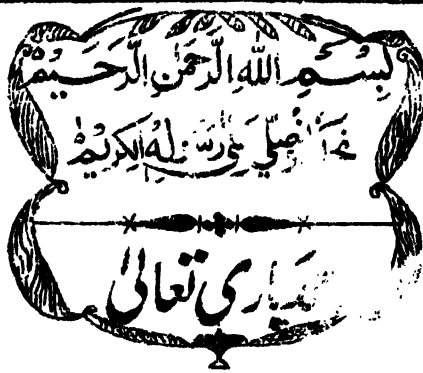 بِسْمِ اللهِ الرَّحْمٰنِ الرَّحِيْمِ
نصلي على رسوله الكريم
باری تعالیٰ